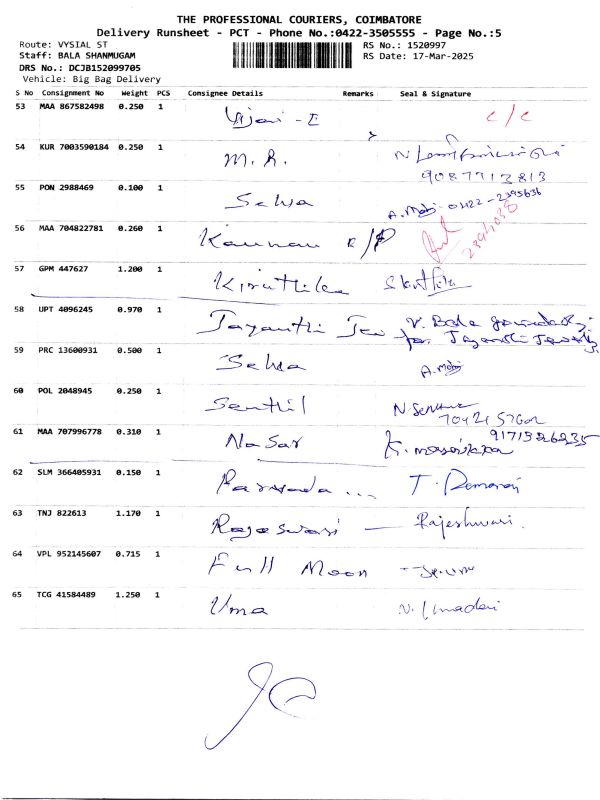 THE PROFESSIONAL COURIERS, COIMBATORE
Delivery Runsheet - PCT - Phone No.:0422-3505555 - Page No.:5
Route: VYSIAL ST RS No.: 1520997
Staff: BALA SHANMUGAM RS Date: 17-Mar-2025
DRS No.: DCJB152099705
Vehicle: Big Bag Delivery
S No Consignment No Weight PCS Consignee Details Remarks Seal & Signature
53 MAA 867582498 0.250 1 c/c
54 KUR 7003590184 0.250 1 M. R.
9087713813
55 PON 2988469 0.100 1 Selva A. Mobi 0422-2395636
56 MAA 704822781 0.260 1 Kannan R/P
57 GPM 447627 1.200 1 Kiruthika
58 UPT 4096245 0.970 1 Jayanthi V. Bala
for Jayanthi
59 PRC 13600931 0.500 1 Selva A. Mobi
60 POL 2048945 0.250 1 Senthil
61 MAA 707996778 0.310 1 Nasar K.
62 SLM 366405931 0.150 1 ... T.
63 TNJ 822613 1.170 1 Rajeswari - Rajeshwari.
64 VPL 952145607 0.715 1 Full Moon
65 TCG 41584489 1.250 1 Uma N. Umadevi